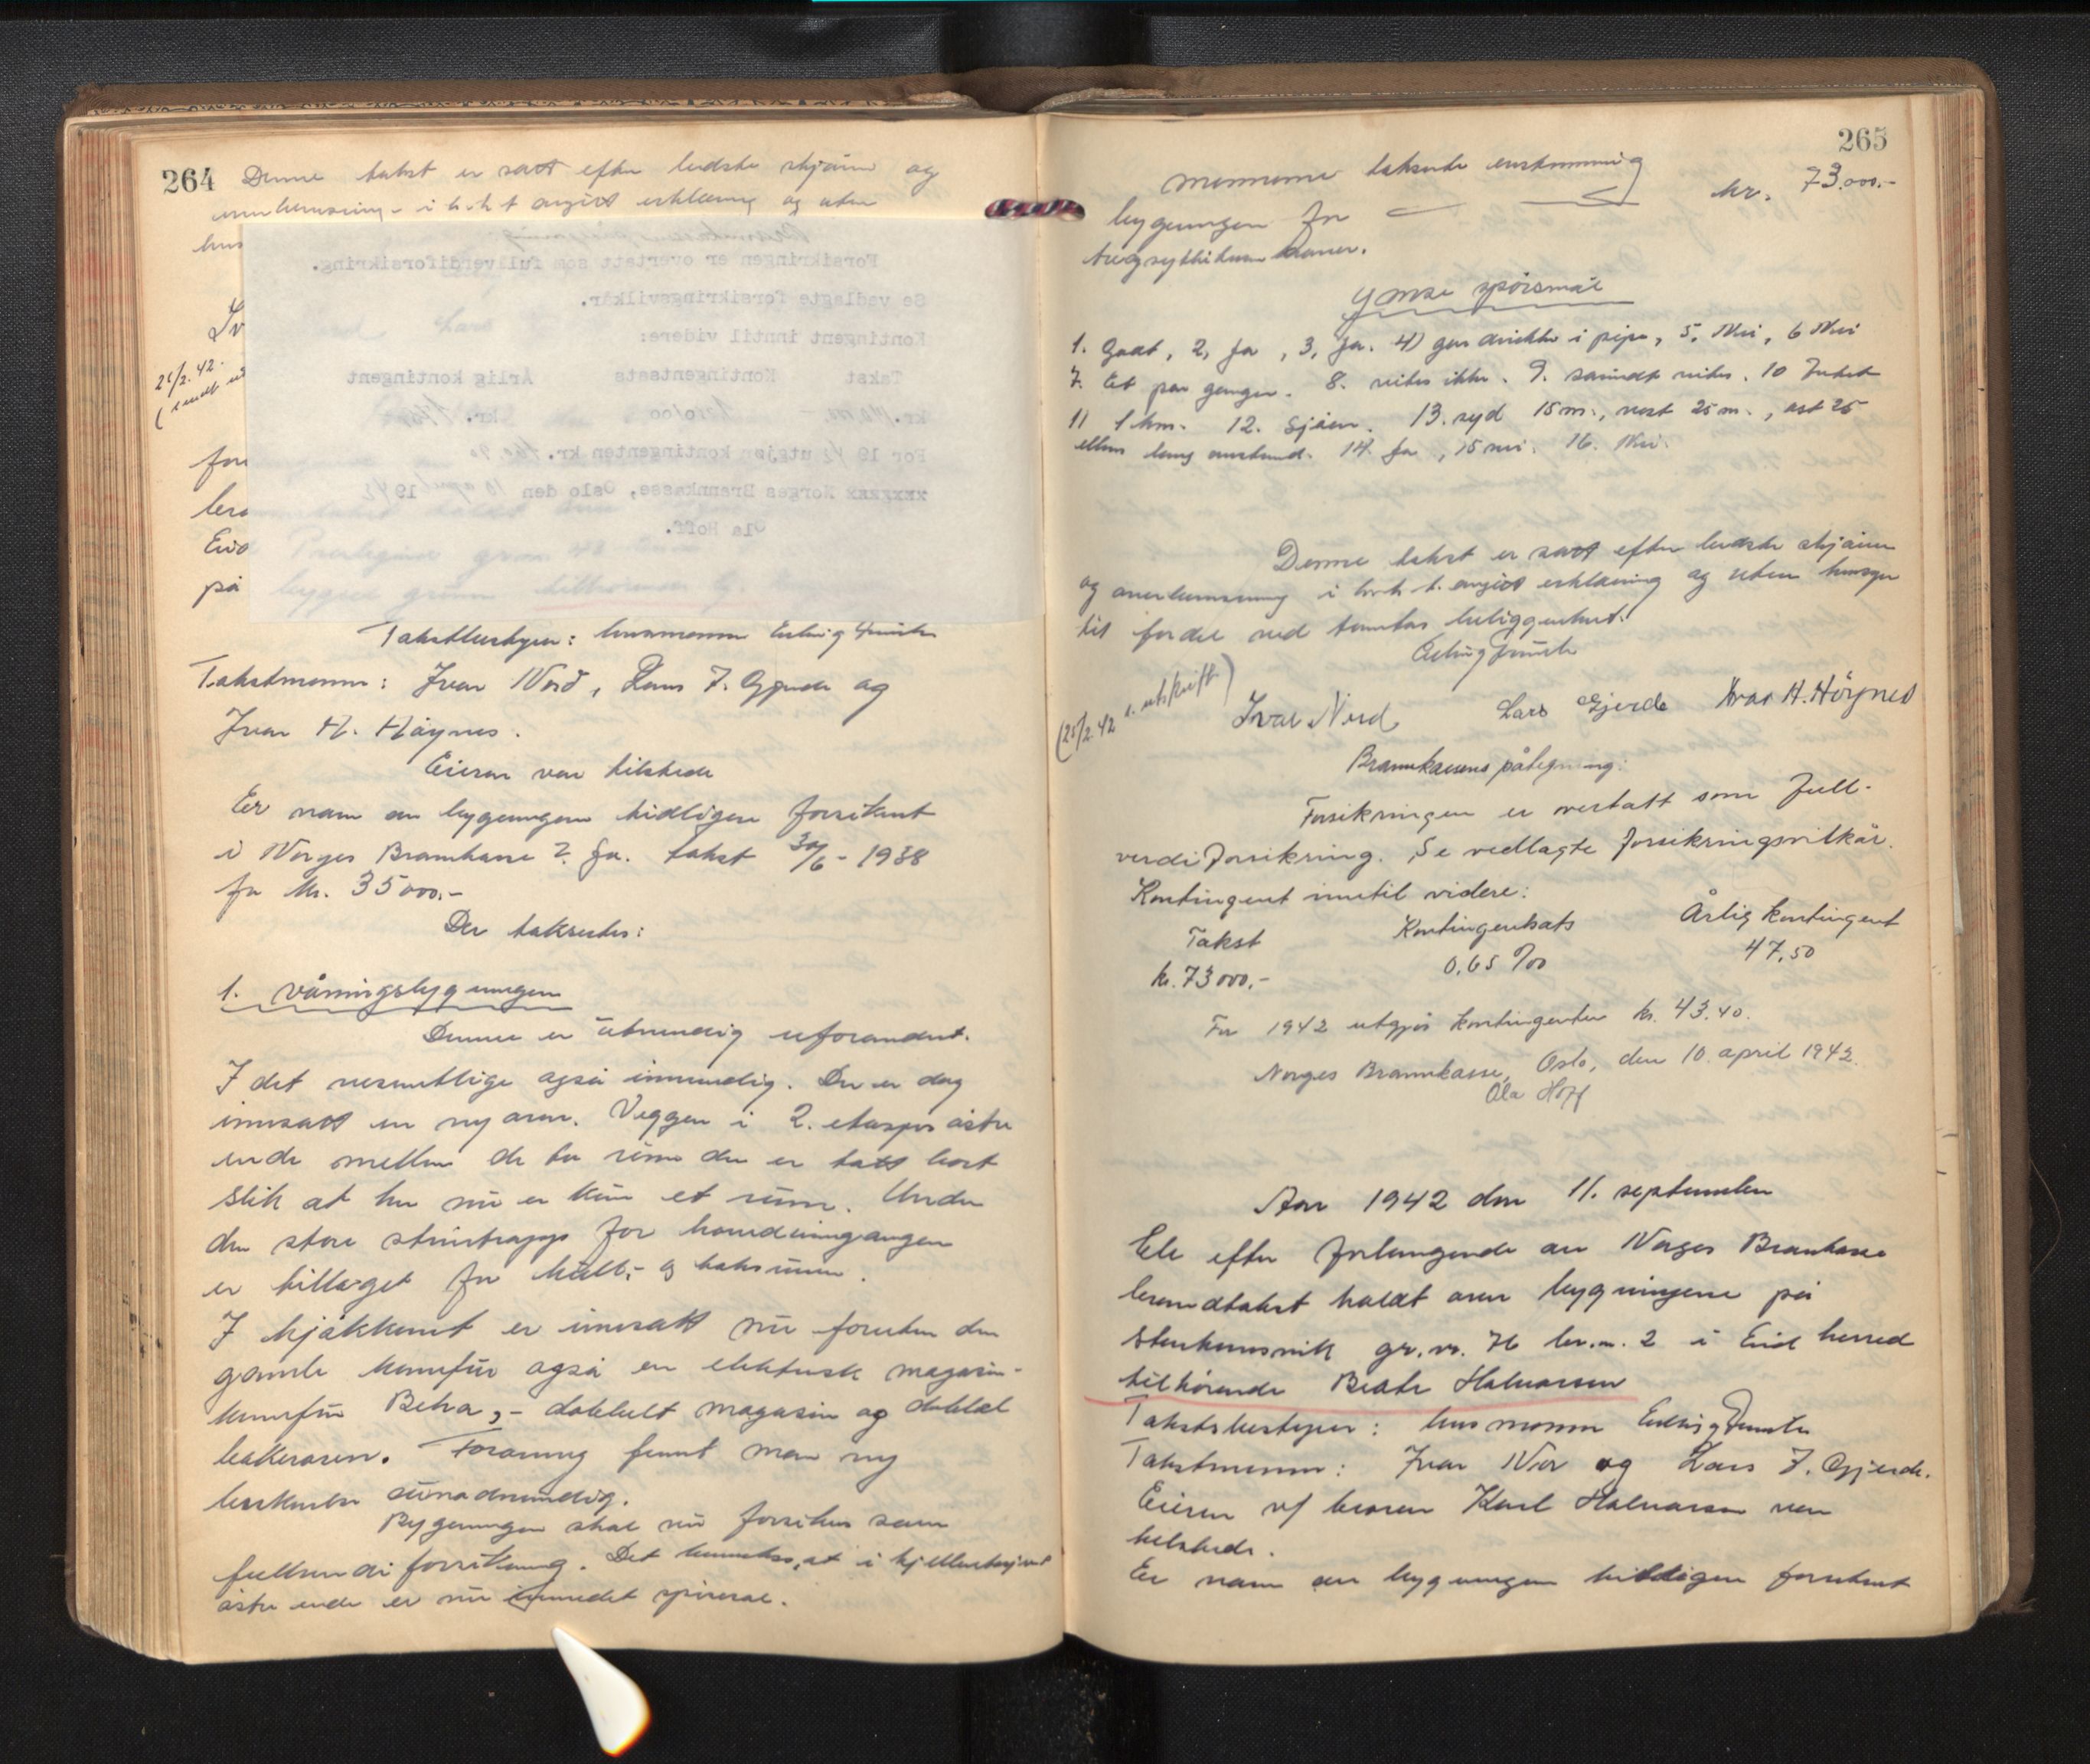 264
Denne takst er satt efter bedste skjønn og
anerkennning i h.h.t. avgitt erklæring og uten
hus
Iv
21/2.42.
for
Eid
på
Forsikringen er overtatt som fullverdiforsikring.
Se vedlagte forsikringsvilkår.
Kontingent inntil videre:
Takst Kontingentsats Årlig kontingent
For 19 42 utgjør kontingenten kr.
xxxxxxx Norges Brannkasse, Oslo den 10 april 1942
Ola Hoff.
Takstbestyrer: lensmann
Takstmenn: Ivar Nord, Lars J. Gjerde og
Ivar H. Høynes.
Eieren var tilstede
Er noen av bygningene tidligere forsikret
i Norges Brannkasse? Ja. takst 30/6 - 1938
for kr. 35000.-
Der takseres:
1. Våningsbygningen
Denne er utvendig uforandret.
I det vesentlige også innvendig. Der er dog
innsatt en ny ovn. Veggen i 2. etasjes østre
ende mellem de to rum der er tatt bort
slik at her nu er kun et rum. Under
den store steintrapp for hovedinngangen
er tillaget for kull- og koksrum.
I kjøkkenet er innsatt nu foruten den
gamle komfur også en elektrisk magasin-
komfur Beha, - dobbelt magasin og dobbel
bakerovn. Foranning fremt man ny
Bygningen skal nu forsikres som
fullverdiforsikring. Det bemerkes, at i kjelleretasjens
østre ende er nu innredet spisesal.
265
mennene takserte enstemmig
bygningen for kr. 73.000.-
Øvrige spørsmål
1. Godt, 2, Ja, 3, Ja. 4) 5, Nei, 6 Nei
7. Et par ganger. 8. vites ikke. 9. 10 Intet
11 1 km. 12. Sjøen. 13. syd 15 m., vest 25 m., øst 25
ellers lang avstand. 14. Ja, 15 nei. 16. Nei.
Denne takst er satt efter bedste skjønn
og i h.h.t. avgitt erklæring og uten hensyn
til fordel ved tomtens beliggenhet.
(25/2.42 s. utskrift)
Ivar Nord Lars Gjerde Ivar H. Høynes
Brannkassens påtegning:
Forsikringen er overtatt som full-
verdiforsikring. Se vedlagte forsikringsvilkår.
Kontingent inntil videre:
Takst Kontingentsats Årlig kontingent
kr. 73000,- 0,65 ‰ 47,50
For 1942 utgjør kontingenten kr. 43.40.
Norges Brannkasse, Oslo, den 10. april 1942.
Ola Hoff
Aar 1942 den 11. september
ble efter forlangende av Norges Brankasse
brandtakst holdt over bygningene på
gr.nr. 76 br.nr. 2 i Eid herred
tilhørende Beate Halvorsen
Takstbestyrer: lensmann
Takstmenn: Ivar Nor og Lars J. Gjerde.
Eieren v/ broren Karl Halvorsen var
tilstede.
Er noen av bygningene tidligere forsikret